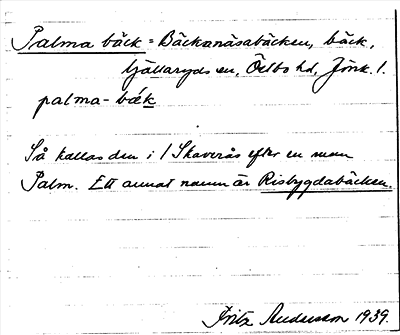 Palma bäck = Bäckanäsabäcken, bäck,
Kjällaryds sn, Östbo hd, Jönk. l.
palma-bäk
Så kallas den i / Skaverås efter en man
Palm. Ett annat namn är Risbygdabäcken.
Fritz Andersson 1939.